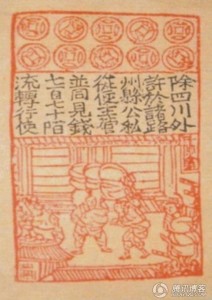 除四川外
許於諸路
州縣公私
從便主管
並同見錢
七百七十陌
流轉行使
腾讯博客